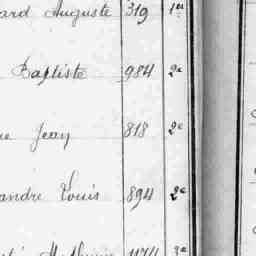 ard Auguste 319 1re
Baptiste 984 2e
ue Jean 818 2e
andre Louis 894 2e
Mathurin 1174 3e